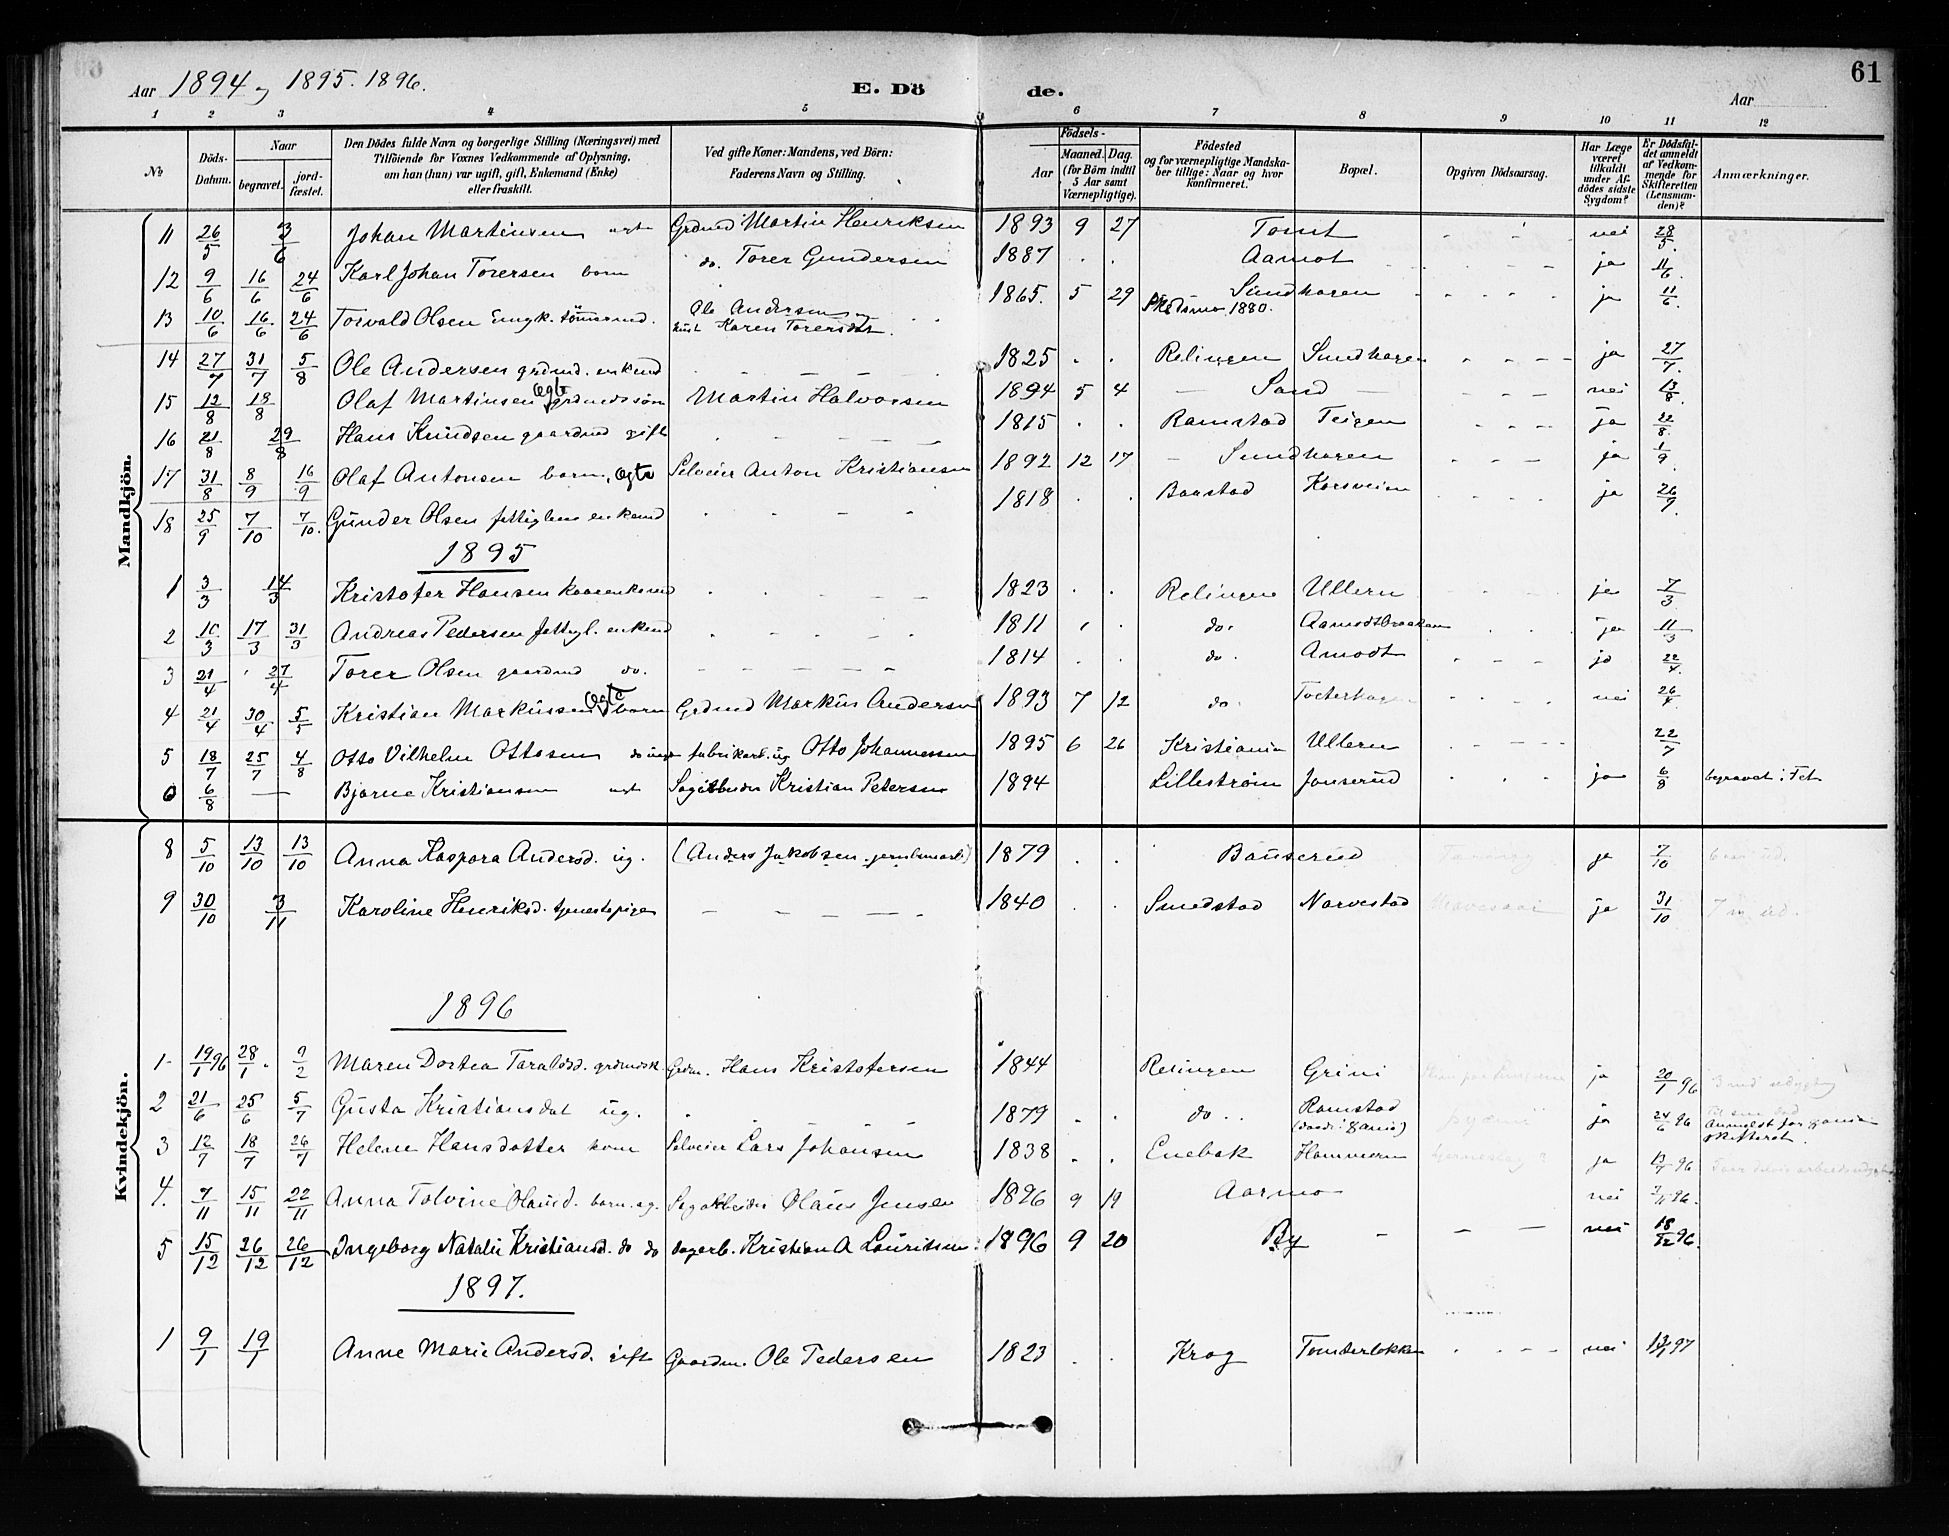 61
Aar 1894 og 1895. 1896. E. Dö de. Aar
1 2 3 4 5 6 7 8 9 10 11 12
No
Döds-Datum.
Naar
begravet.
jord-fæstet.
Den Dödes fulde Navn og borgerlige Stilling (Næringsvei) med
Tilföiende for Voxnes Vedkommende af Oplysning,
om han (hun) var ugift, gift, Enkemand (Enke)
eller fraskilt.
Ved gifte Koner: Mandens, ved Börn:
Faderens Navn og Stilling.
Födsels-
Aar
Maaned. Dag.
(for Börn indtil
5 Aar samt
Værnepligtige).
Födested
og for værnepligtige Mandska-
ber tillige: Naar og hvor
konfirmeret.
Bopæl.
Opgiven Dödsaarsag.
Har Læge
været
tilkaldt
under Af-
dödes sidste
Sygdom?
Er Dödsfal-
det anmeldt
af Vedkom-
mende for
Skifteretten
(Lensman-
den)?
Anmærkninger.
Mandkjön.
11 26/5 3/6 Johan Martinsen Grdmd Martin Henriksen 1893 9 27 Tomt nei 28/5
12 9/6 16/6 24/6 Karl Johan Torersen barn do. Torer Gundersen 1887 Aamot ja 11/6
13 10/6 16/6 24/6 Torvald Olsen Ungk. tömmermd. Ole Andersen og Karen Torersdat 1865. 5 29 Sundhagen Skedsmo 1880. ja 11/6
14 27/7 31/7 5/8 Ole Andersen grdmd. enkemd 1825 Relingen Sundhagen ja 27/7
15 12/8 18/8 Olaf Martinsen Egte grdmdssön Martin Halvorsen 1894 5 4 Sand nei 13/8
16 21/8 29/8 Hans Knudsen gaardmd gift 1815 Ramstad Teigen ja 22/8
17 31/8 8/9 16/9 Olaf Antonsen barn, Egte Selveier Anton Kristiansen 1892 12 17 Sundhagen ja 1/9
18 25/9 7/10 7/10. Gunder Olsen fattiglem enkemd 1818 Baastad Korsveien ja 26/9
1895
1 3/3 14/3 Kristofer Hansen kaarenkemd 1823 Relingen Ullern ja 7/3
2 10/3 17/3 31/3 Andreas Pedersen fattigl. enkemd 1811 do. Aamodtbraaten ja 11/3
3 21/4 27/4 Torer Olsen gaardmd do. 1814 do. Amodt ja 22/4
4 21/4 30/4 5/5 Kristian Markussen Egte barn Grdmd Markus Andersen 1893 7 12 do. nei 26/4
5 18/7 25/7 4/8 Otto Vilhelm Ottosen do fabrikarb. ug Otto Johannessen 1895 6 26 Kristiania Ullern 22/7
6 6/8 — Bjarne Kristiansen Sagarbeider Kristian Petersen 1894 Lillestrøm Jonserud ja 6/8 begravet i Fet
Kvindekjön.
8 5/10 13/10 13/10 Anna Kaspara Andersd. ug. (Anders Jakobsen jernbanearb) 1879 Bauserud ja 7/10
9 30/10 3/11 Karoline Henriksd. tjenestepige 1840 Smedstad Narvestad ja 31/10
1896
1 19/1 96 28/1 9/2 Maren Dortea Taraldsd. grdmdsk. Grdm. Hans Kristofersen 1844 Relingen Grini ja 20/1 96
2 21/6 25/6 5/7 Gusta Kristiansdat ug. 1879 do. Ramstad ja 24/6 96
3 12/7 18/7 26/7 Helene Hansdatter kone Selveier Lars Johansen 1838 Enebak Hammeren ja 13/7 96
4. 7/11 15/11 22/11 Anna Tolvine Olausd. barn. eg. Sagarbeider Olaus Jensen 1896 9 19 Aarmo nei 7/11 96.
5 15/12 26/12 26/12 Ingeborg Natalie Kristiansd. do do dagarb. Kristian A Lauritsen 1896 9 20 By nei 18/12 96.
1897.
1 9/1 19/1 Anne Marie Andersd. gift Gaardm. Ole Pedersen 1823 Krog Tomterløkken nei 13/1 97